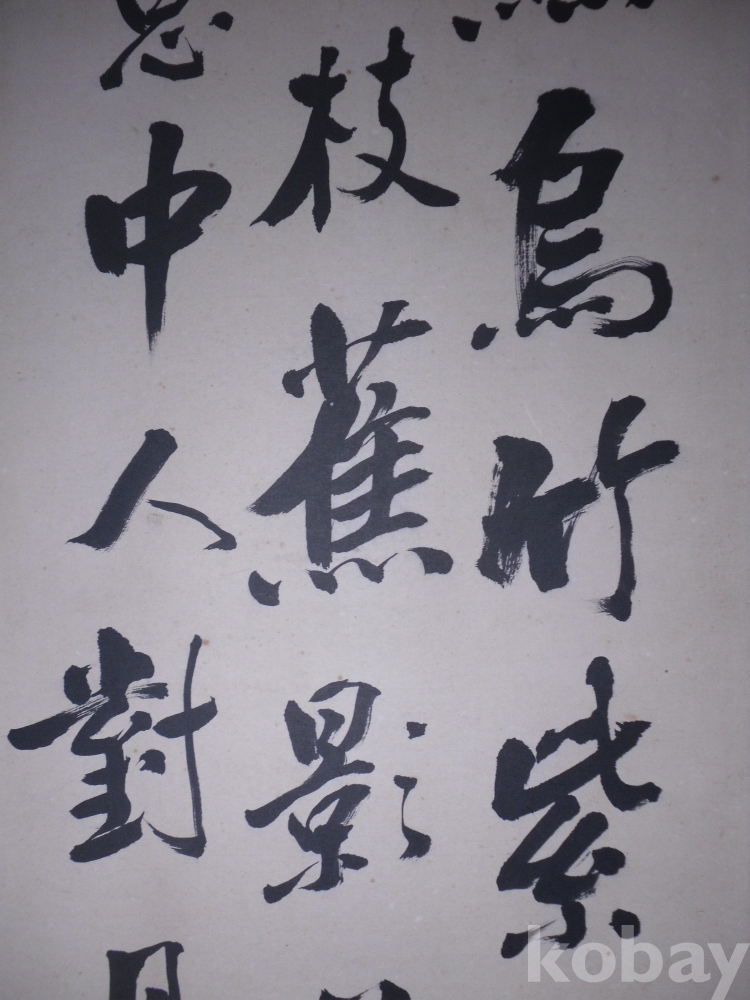 烏竹紫
枝蕉影
中人對
kobay